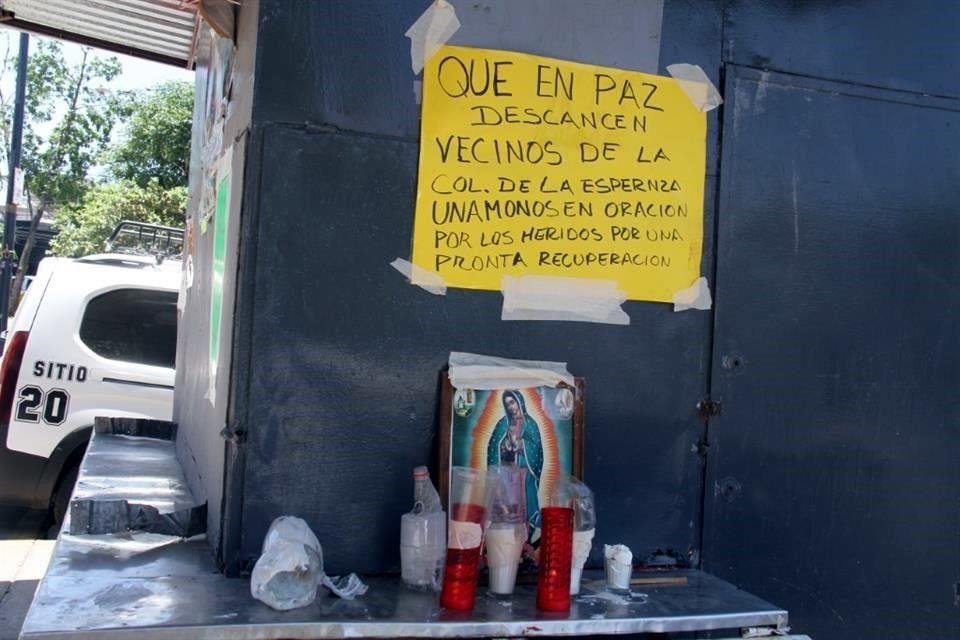 QUE EN PAZ
DESCANCEN
VECINOS DE LA
COL. DE LA ESPERNZA
UNAMONOS EN ORACION
POR LOS HERIDOS POR UNA
PRONTA RECUPERACION
SITIO
20